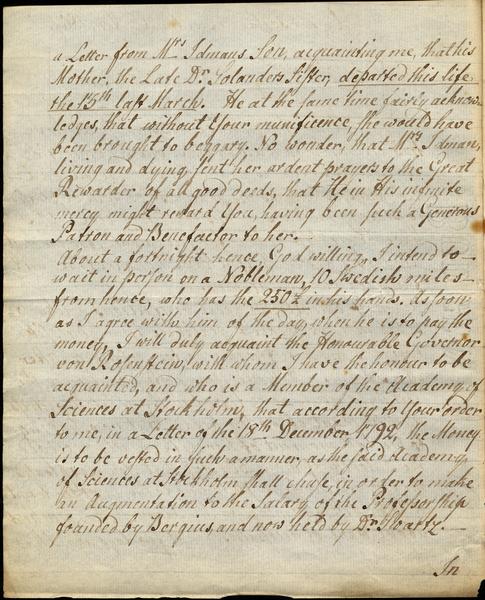 a Letter from Mrs Idmans Son, acquainting me, that his
Mother, the Late Dr Solanders Sister, departed this life
the 15th last March. He at the same time fairly acknow-
ledges, that without Your munificence, she would have
been brought to beggary. No wonder, that Mrs Idman,
living and dying, sent her ardent prayers to the Great
Rewarder of all good deeds, that He in His infinite
mercy might reward You, having been such a Generous
Patron and Benefactor to her.
About a fortnight hence, God willing, I intend to
wait in person on a Nobleman, 10 Swedish miles
from hence, who has the 250 £ in his hands. As soon
as I agree with him of the day, when he is to pay the
money, I will duly acquaint the Honourable Governor
von Rosenstein, with whom I have the honour to be
acquainted, and who is a Member of the Academy of
Sciences at Stockholm, that according to Your order
to me, in a Letter of the 18th December, 1792, the Money
is to be vested in such a manner, as the said Academy
of Sciences at Stockholm shall chuse, in order to make
an Augmentation to the Salary of the Professorship
founded by Bergius, and now held by Dr Swartz.
In